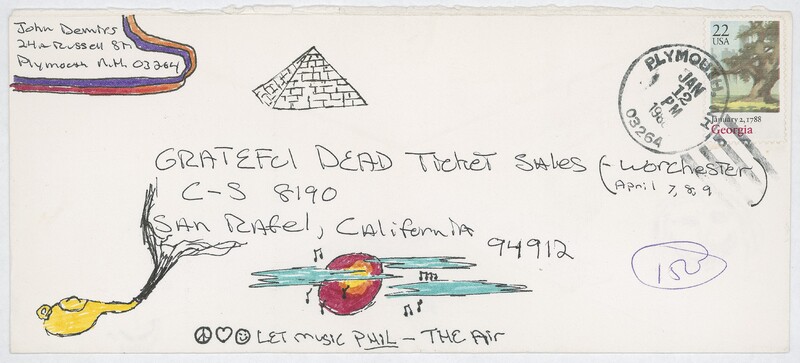 John Demirs
24a Russell St.
Plymouth N.H. 03264
22
USA
January 2, 1788
Georgia
PLYMOUTH, N.H.
JAN
12
PM
03264
GRATEFUL DEAD TICKET SALES (-WORCHESTER)
April 7, 8, 9
C-S 8190
SAN RAFEL, CALIFORNIA
94912
150
LET MUSIC PHIL - THE AIR